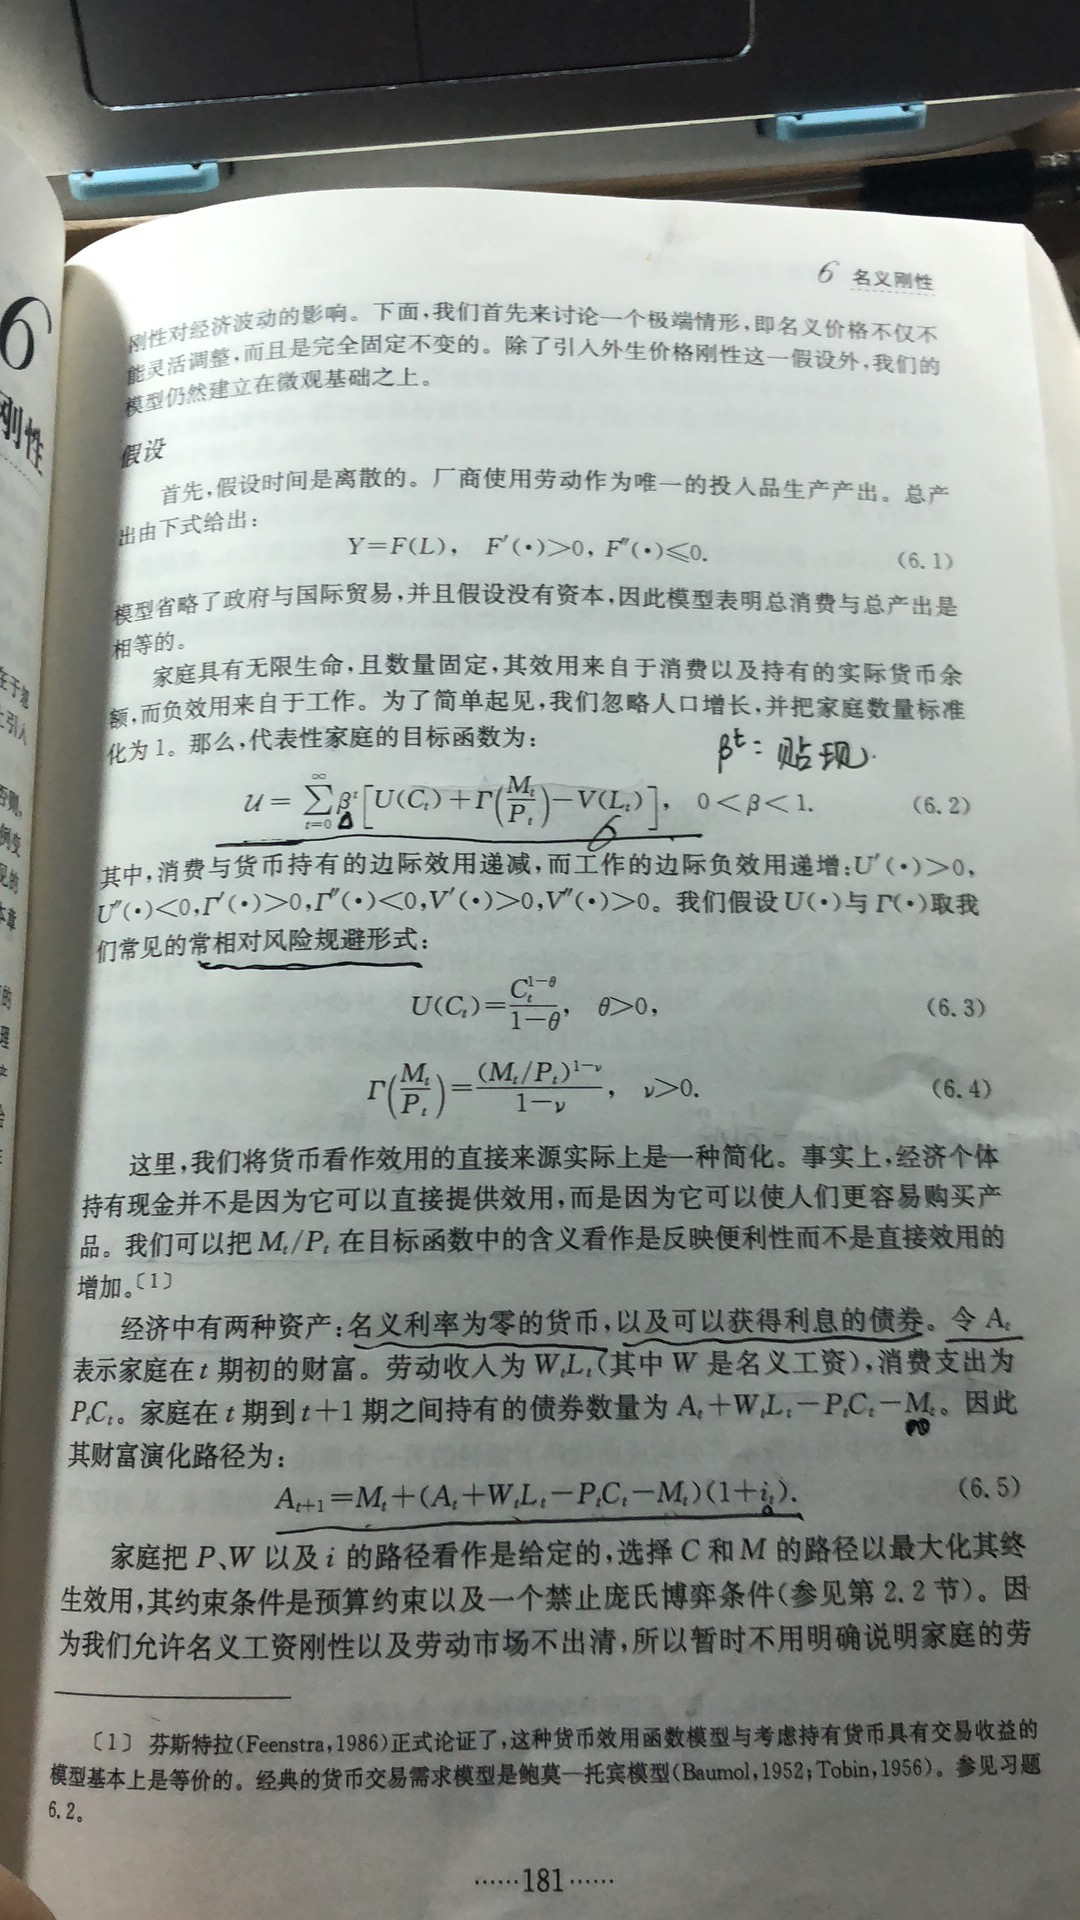 6 名义刚性
6
刚性
刚性对经济波动的影响。下面,我们首先来讨论一个极端情形,即名义价格不仅不
能灵活调整,而且是完全固定不变的。除了引入外生价格刚性这一假设外,我们的
模型仍然建立在微观基础之上。
假设
首先,假设时间是离散的。厂商使用劳动作为唯一的投入品生产产出。总产
出由下式给出:
Y=F(L), F′(•)>0, F″(•)≤0. (6.1)
模型省略了政府与国际贸易,并且假设没有资本,因此模型表明总消费与总产出是
相等的。
家庭具有无限生命,且数量固定,其效用来自于消费以及持有的实际货币余
额,而负效用来自于工作。为了简单起见,我们忽略人口增长,并把家庭数量标准
化为1。那么,代表性家庭的目标函数为:
βᵗ: 贴现.
𝒰 = ∑_{t=0}^{∞} βᵗ[U(Cₜ)+Γ(Mₜ/Pₜ)−V(Lₜ)], 0<β<1. (6.2)
其中,消费与货币持有的边际效用递减,而工作的边际负效用递增:U′(•)>0,
U″(•)<0,Γ′(•)>0,Γ″(•)<0,V′(•)>0,V″(•)>0。我们假设U(•)与Γ(•)取我
们常见的常相对风险规避形式:
U(Cₜ)=Cₜ^{1−θ}/(1−θ), θ>0, (6.3)
Γ(Mₜ/Pₜ)=(Mₜ/Pₜ)^{1−ν}/(1−ν), ν>0. (6.4)
这里,我们将货币看作效用的直接来源实际上是一种简化。事实上,经济个体
持有现金并不是因为它可以直接提供效用,而是因为它可以使人们更容易购买产
品。我们可以把Mₜ/Pₜ在目标函数中的含义看作是反映便利性而不是直接效用的
增加。〔1〕
经济中有两种资产:名义利率为零的货币,以及可以获得利息的债券。令Aₜ
表示家庭在t期初的财富。劳动收入为WₜLₜ(其中W是名义工资),消费支出为
PₜCₜ。家庭在t期到t+1期之间持有的债券数量为Aₜ+WₜLₜ−PₜCₜ−Mₜ。因此
其财富演化路径为:
Aₜ₊₁=Mₜ+(Aₜ+WₜLₜ−PₜCₜ−Mₜ)(1+iₜ). (6.5)
家庭把P、W以及i的路径看作是给定的,选择C和M的路径以最大化其终
生效用,其约束条件是预算约束以及一个禁止庞氏博弈条件(参见第2.2节)。因
为我们允许名义工资刚性以及劳动市场不出清,所以暂时不用明确说明家庭的劳
〔1〕 芬斯特拉(Feenstra,1986)正式论证了,这种货币效用函数模型与考虑持有货币具有交易收益的
模型基本上是等价的。经典的货币交易需求模型是鲍莫—托宾模型(Baumol,1952;Tobin,1956)。参见习题
6.2。
……181……